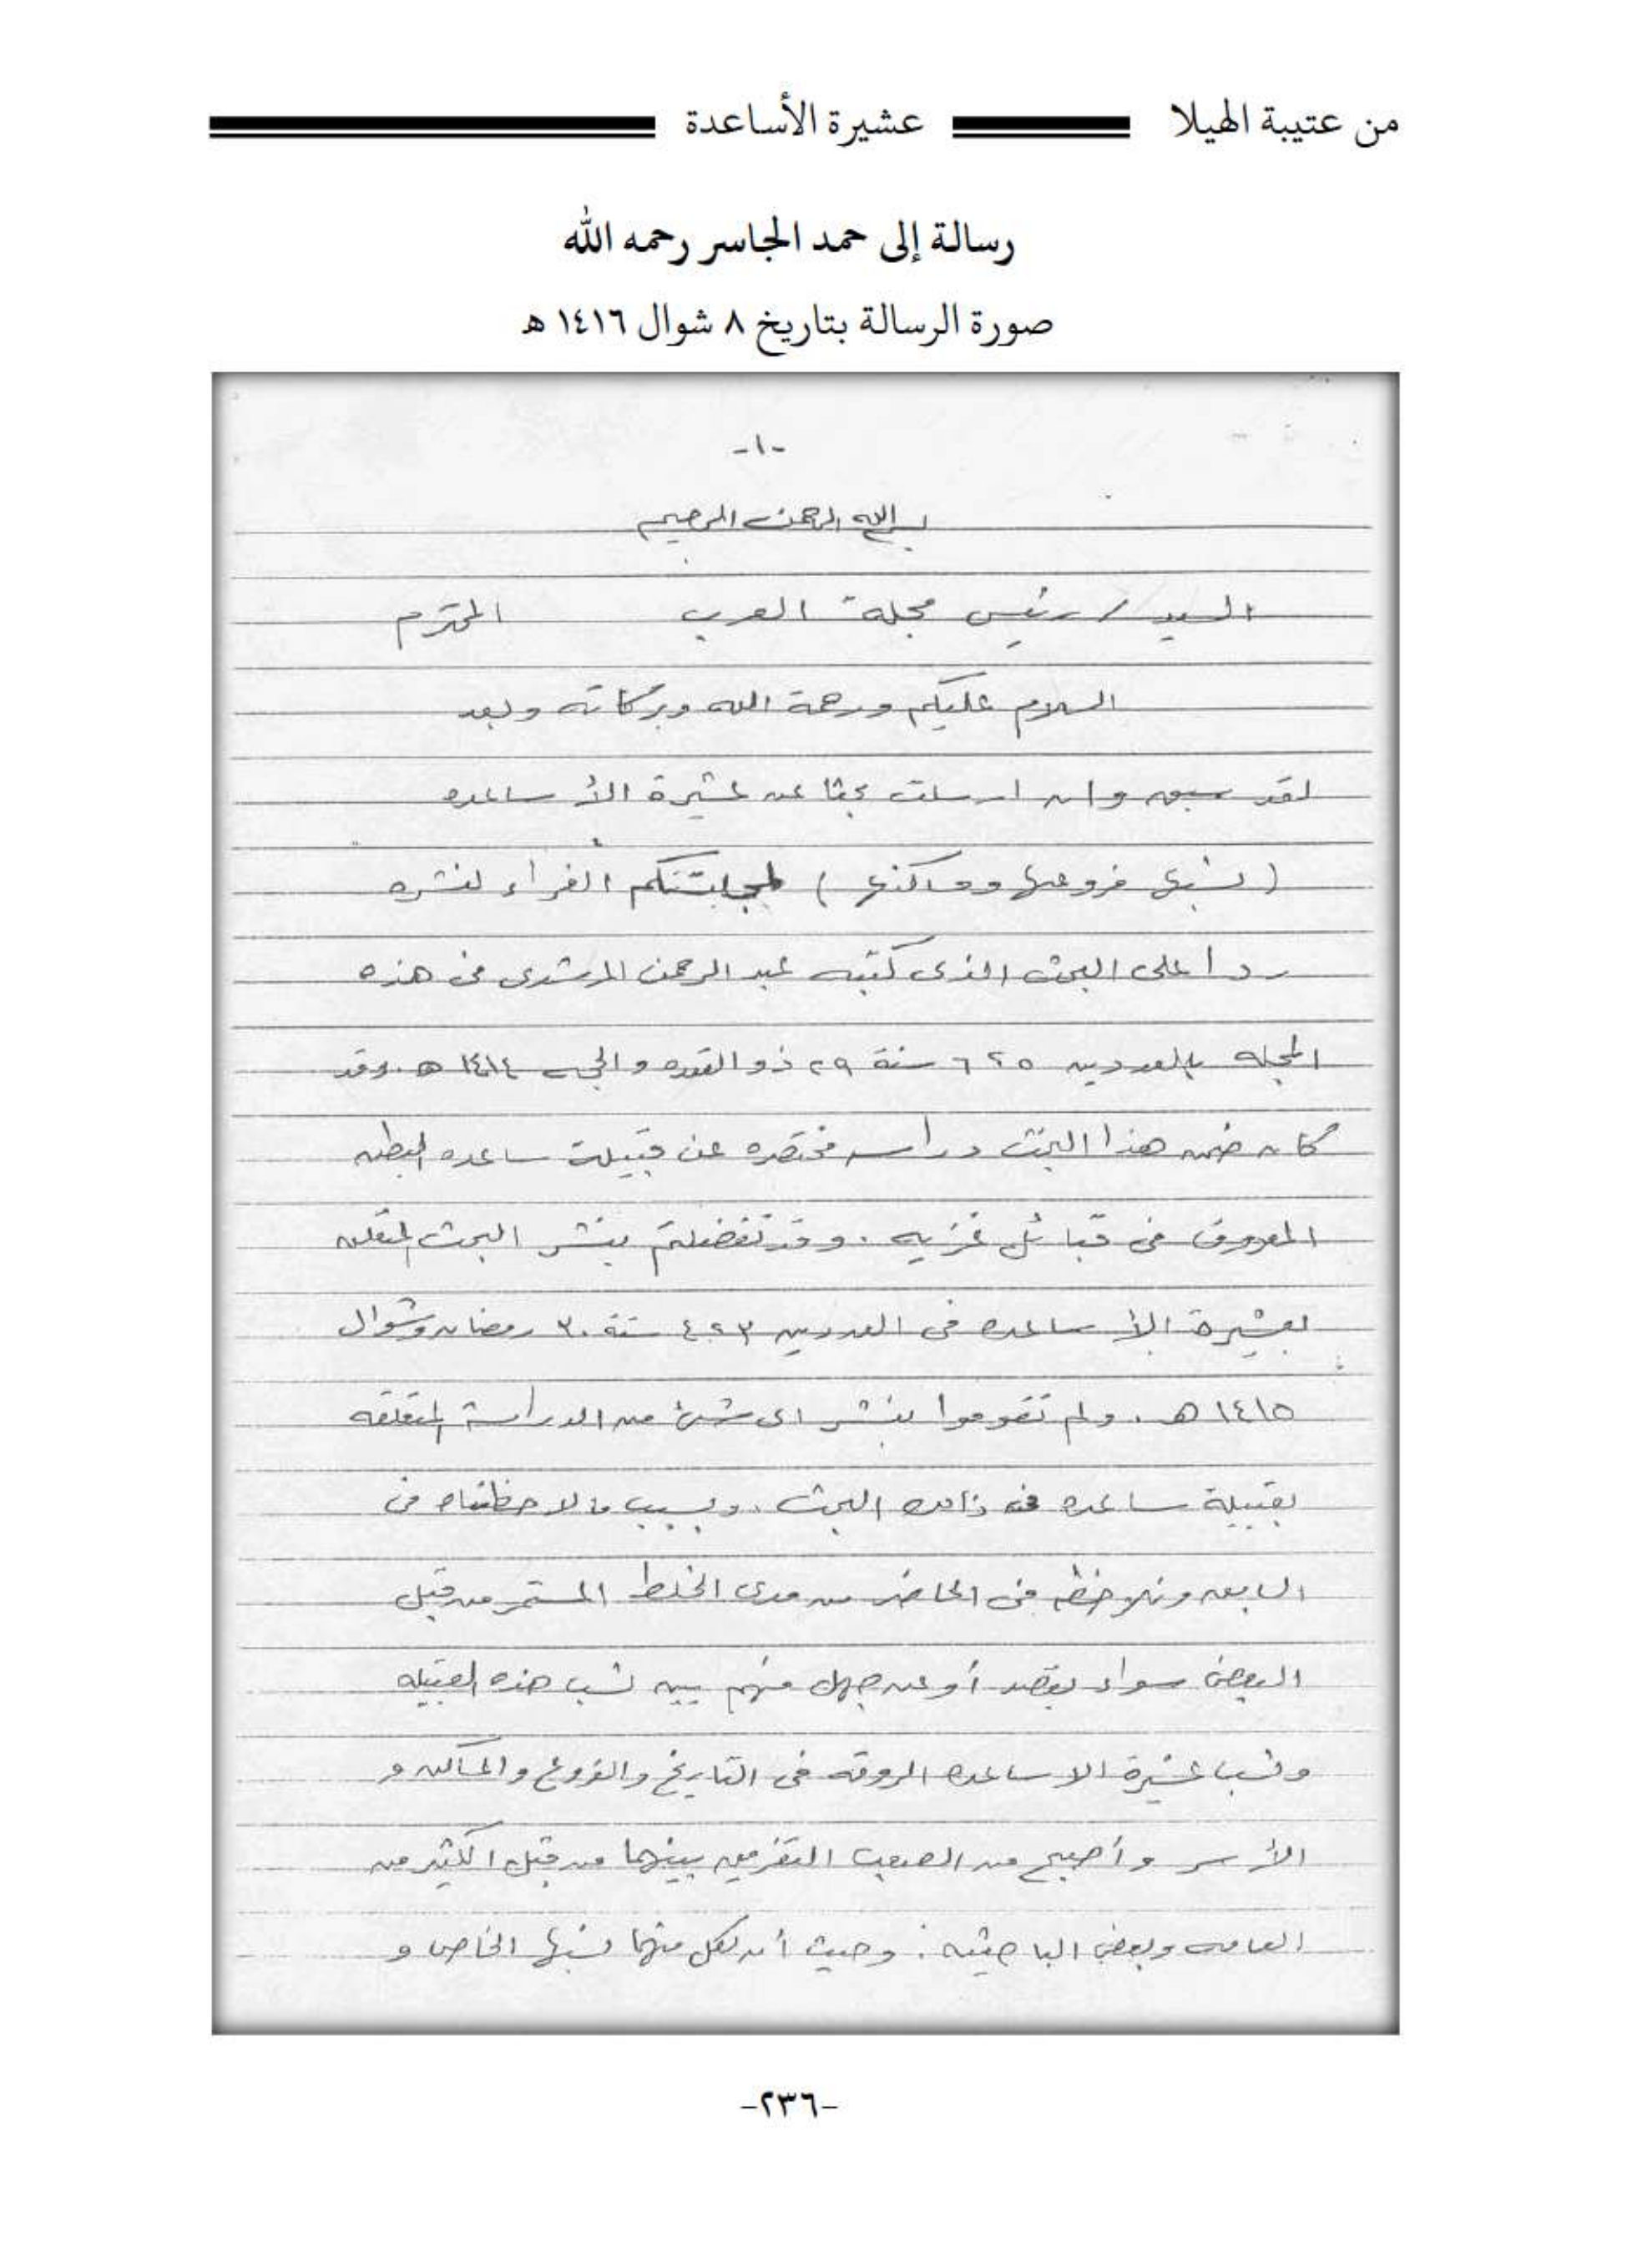 من عتيبة الهيلا
عشيرة الأساعدة
رسالة إلى حمد الجاسر رحمه الله
صورة الرسالة بتاريخ ٨ شوال ١٤١٦ هـ
-١-
بسم الله الرحمن الرحيم
السيد / رئيس مجلة العرب المحترم
السلام عليكم ورحمة الله وبركاته وبعد
لقد سبق وان ارسلت بحثا عن عشيرة الأساعده
( نسبها فروعها ومساكنها ) لمجلتكم الغراء لنشره
ردا على البحث الذى كتبه عبد الرحمن المرشدى فى هذه
المجله بالعددين ٥ ٦ سنة ٢٩ ذو القعده والحجه ١٤١٤ هـ. وقد
كان ضمن هذا البحث دراسه مختصره عن قبيلة ساعده البطن
المعروف فى قبائل غزيه . وقد تفضلتم بنشر البحث المتعلق
بعشيرة الأساعده فى العددين ٣ ٤ سنة ٣٠ رمضان وشوال
١٤١٥ هـ. ولم تقوموا بنشر اى شئ من الدراسة المتعلقه
بقبيلة ساعده فى ذلك البحث. وبسبب ما لاحظناه فى
السابق ونلاحظه فى الحاضر من مدى الخلط المستمر من قبل
البعض سواء بقصد أو عن جهل منهم بين نسب هذه القبيله
ونسب عشيرة الاساعده الروقه فى التاريخ والفروع والمساكن و
الأسر وأصبح من الصعب التفريق بينهما من قبل الكثير من
العامه وبعض الباحثين . وحيث أن لكل منهما نسبها الخاص و
-٢٣٦-